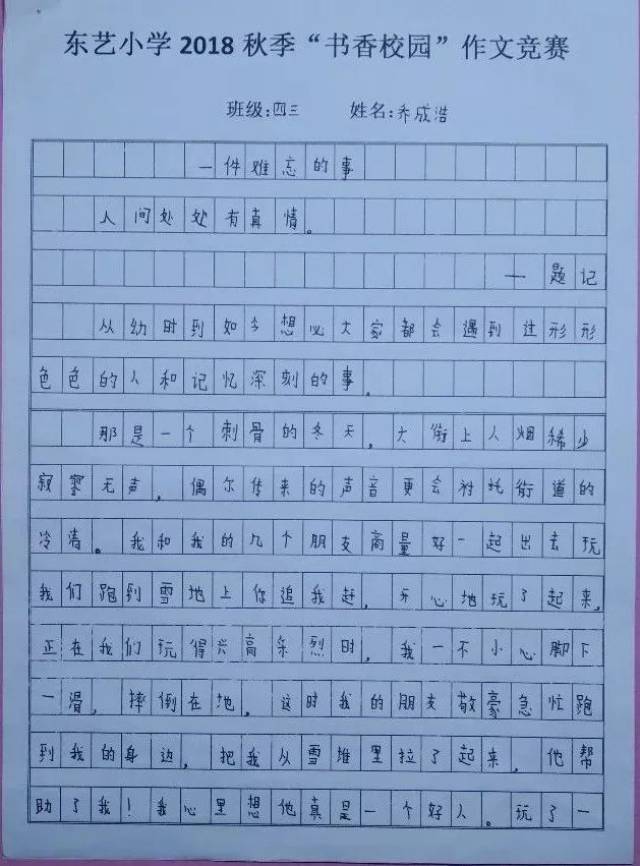 东艺小学2018秋季“书香校园”作文竞赛
班级:四三 姓名:乔成浩
一件难忘的事
人间处处有真情。
——题记
从幼时到如今想必大家都会遇到过形形
色色的人和记忆深刻的事。
那是一个刺骨的冬天，大街上人烟稀少
寂寥无声，偶尔传来的声音更会衬托街道的
冷清。我和我的几个朋友商量好一起出去玩
我们跑到雪地上你追我赶，开心地玩了起来，
正在我们玩得兴高采烈时，我一不小心脚下
一滑，摔倒在地。这时我的朋友敬豪急忙跑
到我的身边，把我从雪堆里拉了起来，他帮
助了我！我心里想他真是一个好人。玩了一